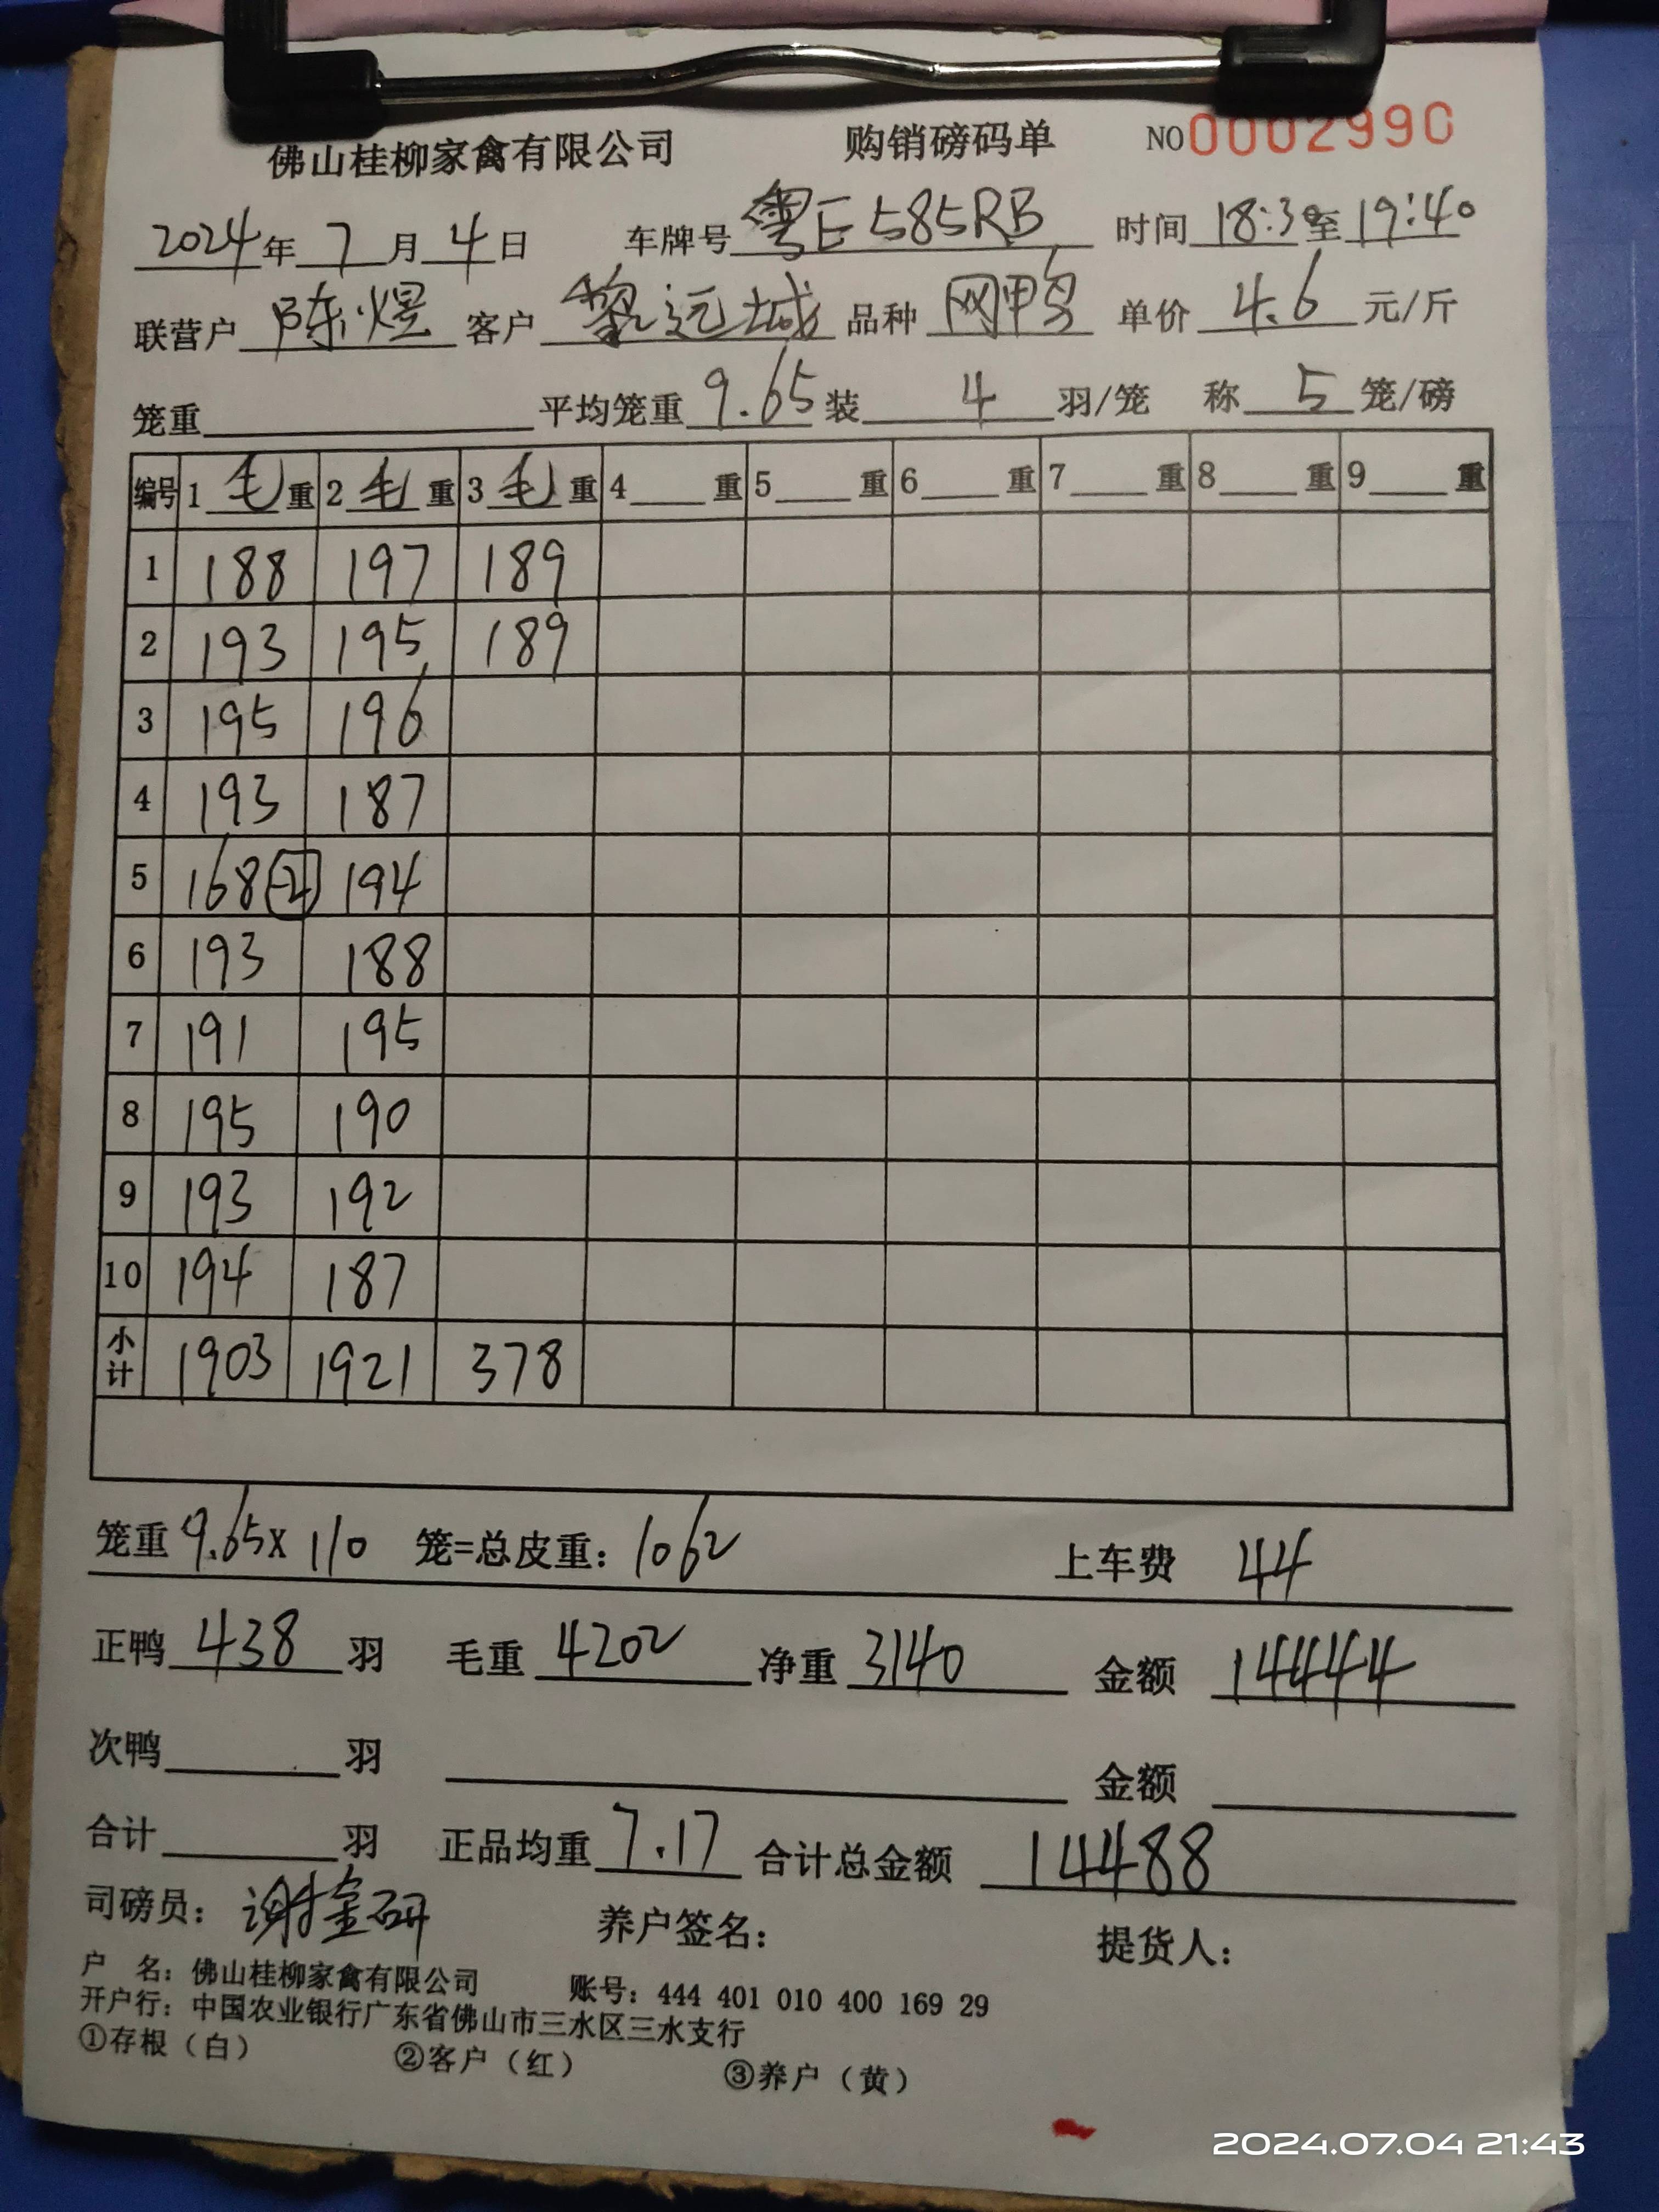 佛山桂柳家禽有限公司 购销磅码单 NO 0002990
2024年 7月 4日 车牌号 粤E 585RB 时间 18:30至 19:40
联营户 陈煜 客户 黎远城 品种 网鸭 单价 4.6 元/斤
笼重 平均笼重 9.65 装 4 羽/笼 称 5 笼/磅
编号 1 毛 重 2 毛 重 3 毛 重 4 重 5 重 6 重 7 重 8 重 9 重
1 188 197 189
2 193 195 189
3 195 196
4 193 187
5 168 -2 194
6 193 188
7 191 195
8 195 190
9 193 192
10 194 187
小计 1903 1921 378
笼重 9.65x 110 笼=总皮重：1062 上车费 44
正鸭 438 羽 毛重 4202 净重 3140 金额 14444
次鸭 羽 金额
合计 羽 正品均重 7.17 合计总金额 14488
司磅员： 谢 研 养户签名： 提货人：
户 名：佛山桂柳家禽有限公司 账号：444 401 010 400 169 29
开户行：中国农业银行广东省佛山市三水区三水支行
①存根（白） ②客户（红） ③养户（黄）
2024.07.04 21:43